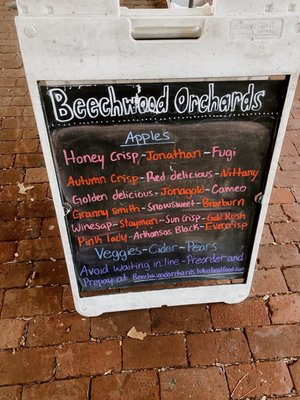 Beechwood Orchards
Apples
Honey Crisp - Jonathan - Fugi
Autumn Crisp - Red delicious - Nittany
Golden delicious - Jonagold - Cameo
Granny Smith - Snowsweet - Braeburn
Winesap - Stayman - Sun crisp - Gold Rush
Pink Lady - Arkansas Black - Evercrisp
Veggies - Cider - Pears
Avoid waiting in line - Preorder and
Prepay at Beechwoodorchards.luluslocalfood.com